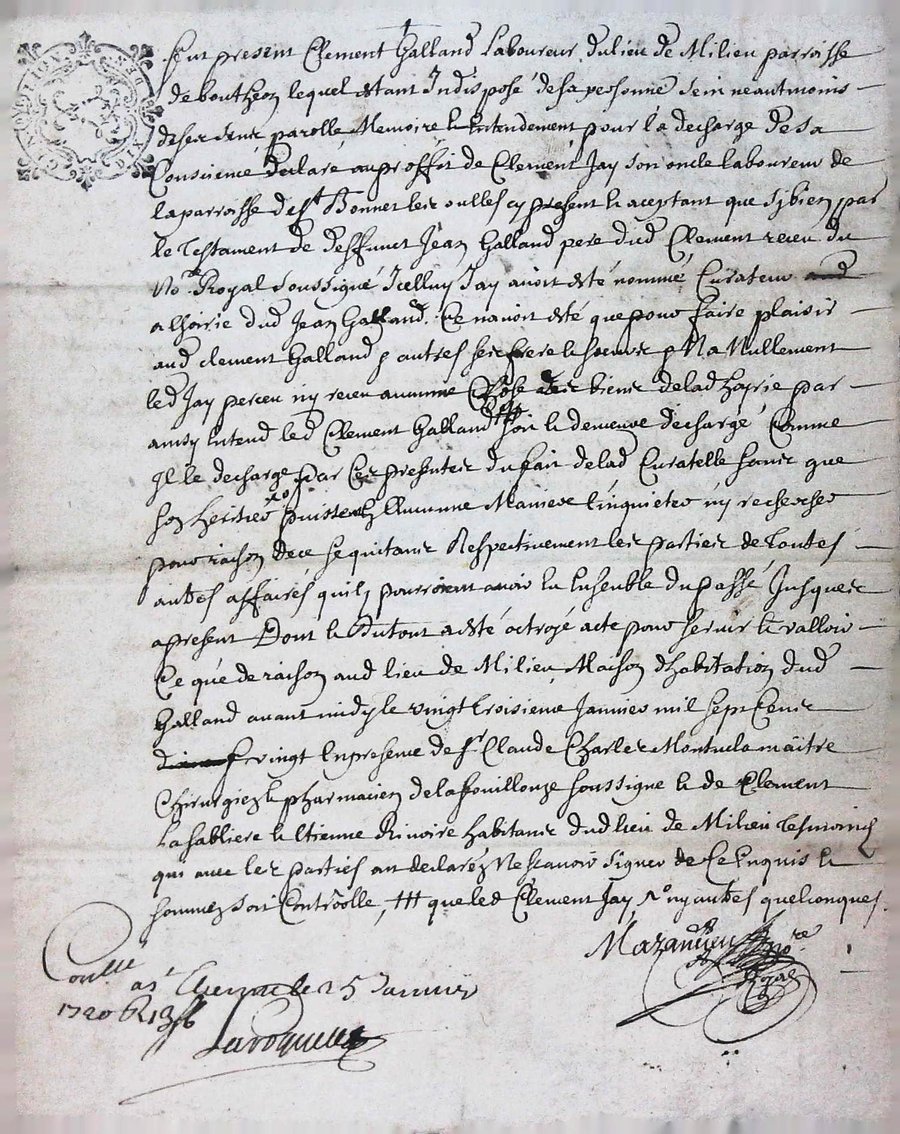 fut present Clement Galland laboureur du lieu de Milieu parroisse
de boutheon lequel estant Indisposé de sa personne sein neautmoins
de ses sens parolle Memoire & Entendement pour la decharge de sa
Consiience declare au proffit de Clement Jay son oncle laboureur de
la parroisse de st Bonnet les oulles cy present & aceptant que sy bien par
le Testament de deffunct Jean Galland pere dud Clement receu du
No.re Royal soussigné Icelluy Jay avoit esté nommé Curateur
a lhoirie dud Jean Galland. Ce navoit esté que pour faire plaisir
aud clement Galland & autres ses frere & soeurs & Na Nullement
led Jay perceu ny receu aucunne Chose des biens de lad hoyrie par
ainsy Entend led Clement Galland ttt soit & demeure dechargé Comme
Il le decharge par Ces presentes du fait de lad Curatelle sans que
ses heritiers puissent En Aucunne Maniere linquieter ny rechercher
pour raison de ce se quitans Respectivement les parties de toutes
autres affaires quils pourroient avoir Eu Ensemble du passé Jusques
a present Dont & du tout a esté octroyé acte pour servir & valloir
Ce que de raison aud lieu de Milieu Maison dhabitation dud
Galland avant midy le vingt troisieme Janvier mil sept Cens
vingt En presence de sr Claude Charles Montucla maitre
Chirurgien & pharmacien de la fouillouze soussigne & de Clement
La sabliere & Etienne Rivoire habitans dud lieu de Milieu tesmoins
qui avec les parties on declarez Ne scavoir signer de Ce Enquis &
sommez soit Controolle, ttt que led Clement Jay, ny autres quelconques.
Mazandieu no.re
Royal
Conlle
a st Etienne le 25 Janvier
1720 R 13s